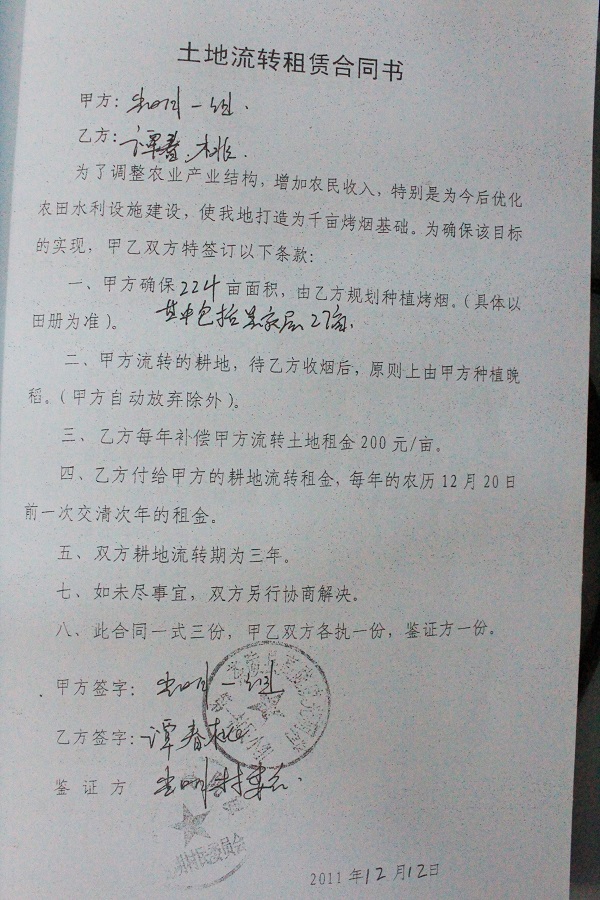 土地流转租赁合同书
甲方: 一组.
乙方: 谭春桃.
为了调整农业产业结构，增加农民收入，特别是为今后优化
农田水利设施建设，使我地打造为千亩烤烟基础。为确保该目标
的实现，甲乙双方特签订以下条款:
一、甲方确保224亩面积，由乙方规划种植烤烟。(具体以
田册为准)。 其中包括 27亩.
二、甲方流转的耕地，待乙方收烟后，原则上由甲方种植晚
稻。(甲方自动放弃除外)。
三、乙方每年补偿甲方流转土地租金200元/亩。
四、乙方付给甲方的耕地流转租金，每年的农历12月20日
前一次交清次年的租金。
五、双方耕地流转期为三年。
七、如未尽事宜，双方另行协商解决。
八、此合同一式三份，甲乙双方各执一份，鉴证方一份。
甲方签字: 一组.
乙方签字: 谭春桃
鉴证方 村委会.
村民委员会
2011年12月12日